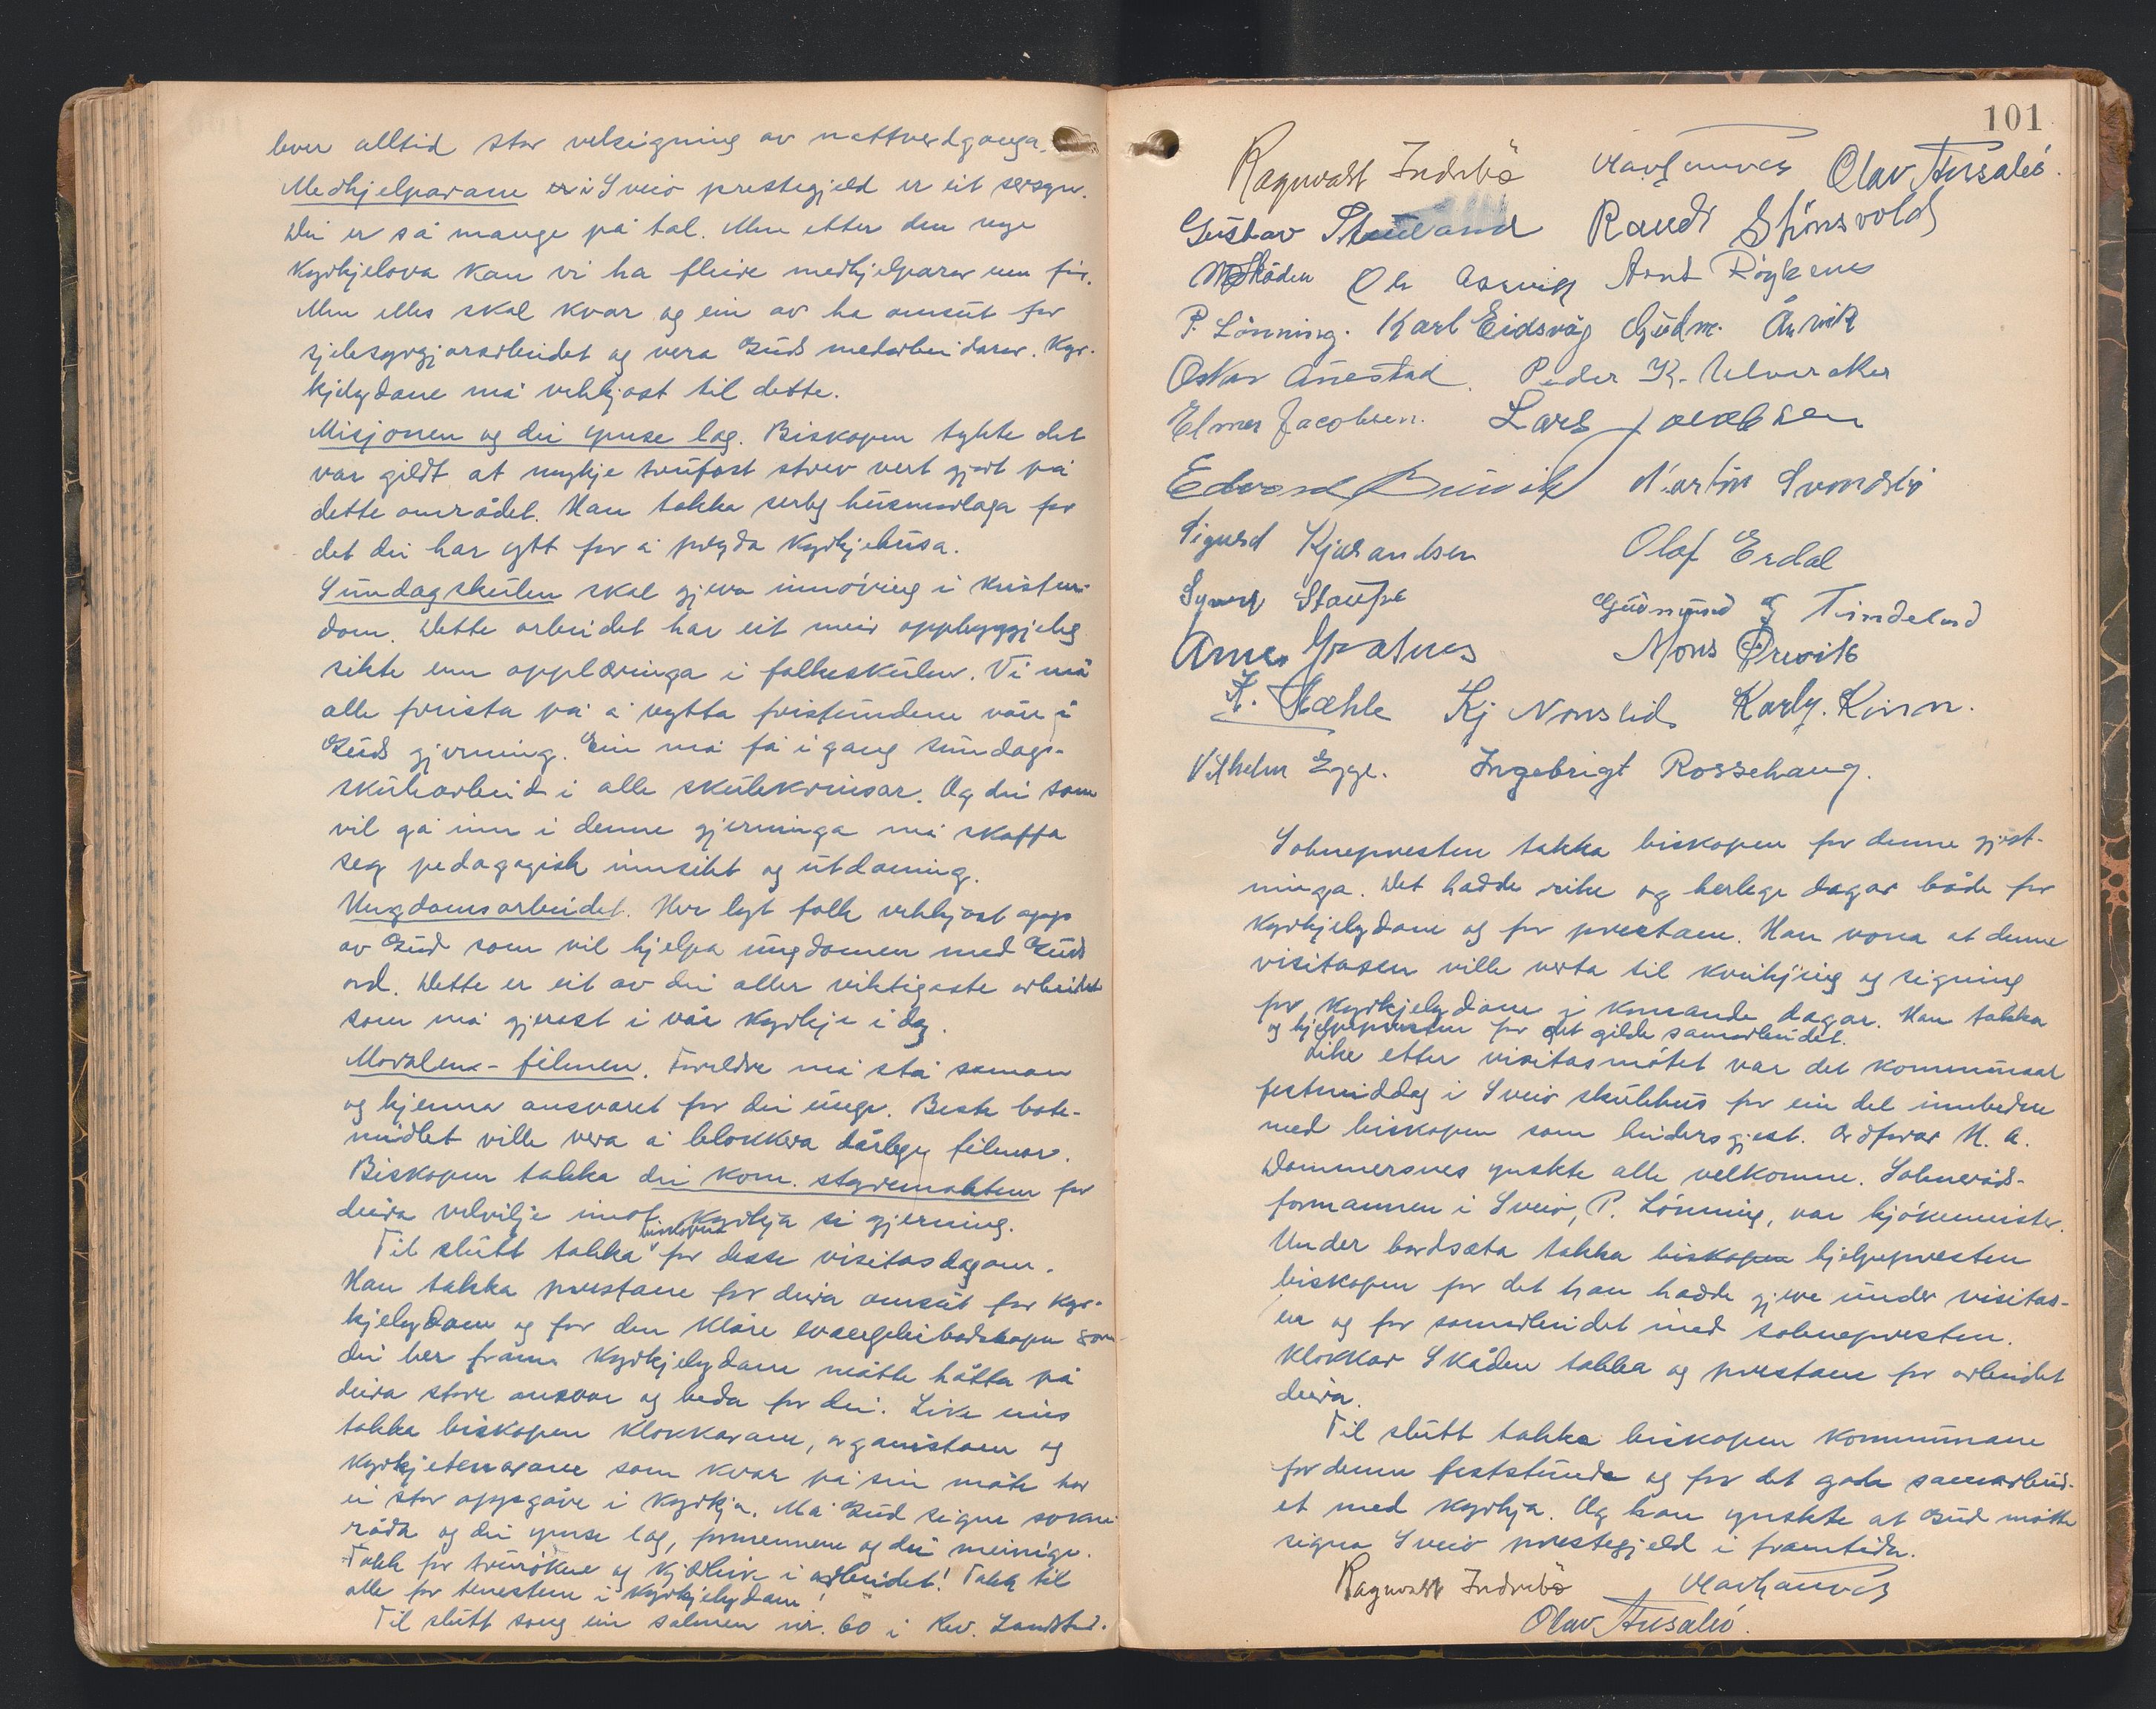 lover alltid stor velsigning av nattverdgonga.
Medhjelparane er i Sveio prestegjeld er eit sersyn.
Dei er så mange på tal. Men etter den nye
Kyrkjelova kan vi ha fleire medhjelparar enn før.
Men elles skal kvar og ein av ha omsut for
sjelesyrgjararbeidet og vera Guds medarbeidarar. Kyr-
kjelydane må vekkjast til dette.
Misjonen og dei ymse lag. Biskopen tykte det
var gildt at mykje trufast strev vert gjort på
dette området. Han takka serleg husmorlaga for
det dei har ytt for å pryda kyrkjehusa.
Sundagskulen skal gjeva innøving i kristen-
dom. Dette arbeidet har eit meir oppbyggjeleg
sikte enn opplæringa i folkeskulen. Vi må
alle freista på å nytta fristundene våre i
Guds gjerning. Ein må få i gang sundags-
skularbeid i alle skulekrinsar. Og dei som
vil gå inn i denne gjerninga må skaffa
seg pedagogisk innsikt og utdaning.
Ungdomsarbeidet. Her lyt folk vekkjast opp
av Gud som vil hjelpa ungdomen med Guds
ord. Dette er eit av dei aller viktigaste arbeidet
som må gjerast i vår kyrkje i dag.
Moralen - filmen. Foreldre må stå saman
og kjenna ansvaret for dei unge. Beste bote-
midlet ville vera å blokkera dårlege filmar.
Biskopen takka dei kom. styremaktene for
deira velvilje imot kyrkja si gjerning.
Til slutt takka biskopen for desse visitasdagane.
Han takka prestane for deira omsut for kyr-
kjelydane og for den klåre evangeliebodskapen som
dei ber fram. Kyrkjelydane måtte hålta på
deira store ansvar og beda for dei. Like eins
takka biskopen klokkarane, organistane og
kyrkjetenarane som kvar på sin måte har
ei stor oppgåve i kyrkja. Må Gud signe sokne-
råda og dei ymse lag, formennene og dei meinige.
Takk for truskne og kjærleik i arbeidet! Takk til
alle for tenesten i kyrkjelydane!
Til slutt song ein salmen nr. 60 i Rev. Landstad.
101
Ragnvald Indrebø Olav Aursalid.
Gustav Randi Stonsvold
M Skåden Ole Åsevik Arnt Røykenes
P. Lönning. Karl Eidsvåg Gudm. Ånvik
Oskar Auestad. Peder K. Ulveraker
Elmer Jacobsen. Lars Jacobsen
Edvard Buvik Martin Svendsbø
Sigurd Kjærandsen Olaf Erdal
Synnøv Staupe Gudmund G Tindeland
Arne Mons Ørevik
A. Mæhle Kj Nonslid Karly. Kinn.
Vilhelm Egge. Ingebrigt Rossehaug.
Soknepresten takka biskopen for denne gjest-
ninga. Det hadde rike og herlege dagar både for
kyrkjelydane og for prestane. Han vona at denne
visitasen ville verta til kveikjing og signing
for kyrkjelydane i komande dagar. Han takka
og hjelpepresten for det gilde samarbeidet.
Like etter visitasmøtet var det kommunal
festmiddag i Sveio skulehus for ein del innbedne
med biskopen som heidersgjest. Ordførar H. A.
Dommersnes ynskte alle velkomne. Sokneråds-
formannen i Sveio, P. Lönning, var kjökemeister.
Under bordsæta takka biskopen hjelpepresten
biskopen for det han hadde gjeve under visitas-
en og for samarbeidet med soknepresten.
Klokkar Skåden takka og prestane for arbeidet
deira.
Til slutt takka biskopen kommunane
for denne feststunda og for det gode samarbeid-
et med kyrkja. Og han ynskte at Gud måtte
signa Sveio prestegjeld i framtida.
Ragnvald Indrebø
Olav Aursalid.